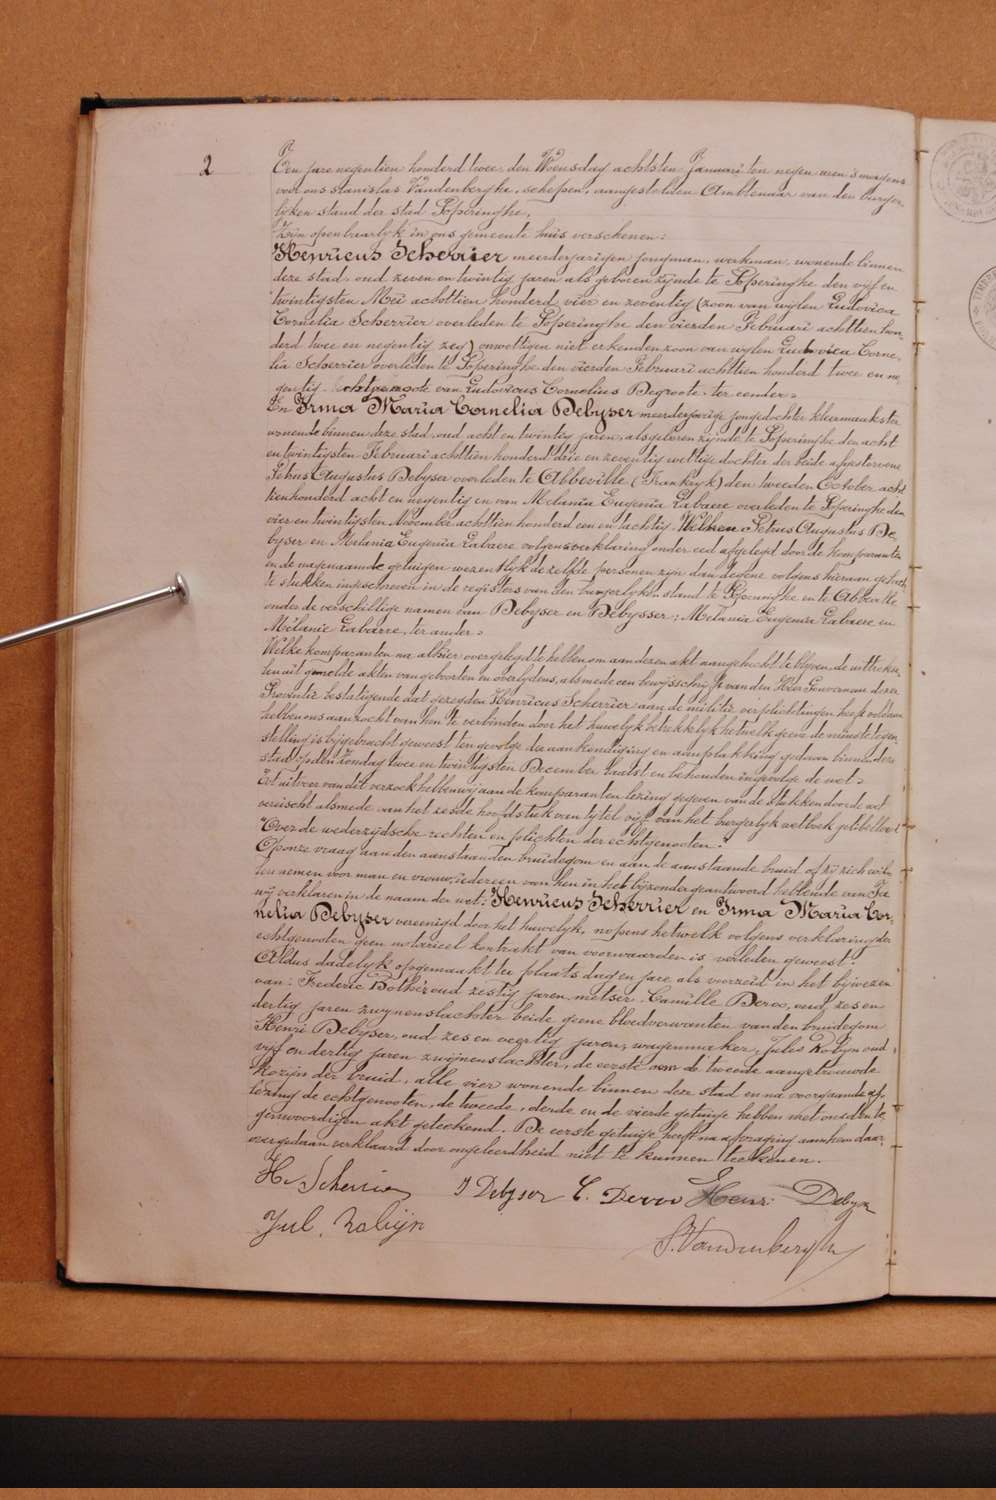 2
Den jare negentien honderd twee, den Woensdag achtsten Januari ten negen uren s'morgens
voor ons Stanislas Vandenberghe, schepen, aangestelden Ambtenaar van den burger-
lijken stand der stad Poperinghe,
Zijn openbaarlyk in ons gemeente huis verschenen:
Henricus Scherrier meerderjarigen jongman, werkman, wonende binnen
deze stad, oud zeven en twintig jaren als geboren zynde te Poperinghe den vijf en
twintigsten Mei achttien honderd vier en zeventig (zoon van wylen Ludovica
Cornelia Scherrier overleden te Poperinghe den vierden Februari achttien hon-
derd twee en negentig zeg) onwettigen niet erkenden zoon van wylen Ludovica Corne-
lia Scherrier overleden te Poperinghe den vierden Februari achttien honderd twee en ne-
gentig. Echtgenoote van Ludovicus Cornelius Degroote, ter eender.
En Irma Maria Cornelia Debyser meerderjarige jongedochter kleermaakster
wonende binnen deze stad, oud acht en twintig jaren, als geboren zynde te Poperinghe den acht
en twintigsten Februari achttien honderd drie en zeventig wettige dochter der beide afgestorvene
Petrus Augustus Debyser overleden te Abbeville (Frankryk) den tweeden October acht
tienhonderd acht en negentig en van Melania Eugenia Labaere overleden te Poperinghe den
vier en twintigsten November achttien honderd een en tachtig. Welken Petrus Augustus De-
byser en Melania Eugenia Labaere volgens verklaring onder eed afgelegd door de komparanten
en de nagenaamde getuigen wezentlyk dezelfde personen zyn dan degene volgens hieraan gehech-
te stukken ingeschreven in de registers van den burgerlyken stand te Poperinghe en te Abbeville
onder de verschillige namen van Debyser en Debysser; Melania Eugenia Labaere en
Mélanie Labarre, ter ander.
Welke komparanten na alhier overgelegd te hebben om aan dezen akt aangehecht te blyven de uittreksel-
len uit gemelde akten van geboorten en overlydens, alsmede een bewysschrift van den Heer Gouverneur dezer
Provintie bestatigende dat gezegden Henricus Scherrier aan de militie verplichtingen heeft voldaan
hebben ons aanzocht van hen te verbinden door het huwelyk betrekkelyk hetwelk geene de minste tegen-
stelling is bygebracht geweest ten gevolge der aankondiging en aanplakking gedaan binnen deze
stad op den Zondag twee en twintigsten December laatst en behouden ingevolge de wet.
Tot uitvoer van dit verzoek hebben wij aan de komparanten lezing gegeven van de stukken door de wet
vereischt alsmede van het zesde hoofdstuk van tytel vijf van het burgerlyk wetboek getiteld:
"Over de wederzydsche rechten en plichten der echtgenooten."
Op onze vraag aan den aanstaanden bruidegom en aan de aanstaande bruid of zij zich wil-
len nemen voor man en vrouw, iedereen van hen in het byzonder geantwoord hebbende van Ja
wij verklaren in de naam der wet: Henricus Scherrier en Irma Maria Cor-
nelia Debyser vereenigd door het huwelyk, nopens hetwelk volgens verklaring der
echtgenooten geen notarieel kontrakt van voorwaarden is verleden geweest.
Aldus dadelyk opgemaakt ter plaats dag en jare als voorzeid in het bijwezen
van: Frederic Bothé oud zestig jaren, metser, Camille Deroo, oud, zes en
dertig jaren zwynenslachter beide geene bloedverwanten van den bruidegom
Henri Debyser, oud zes en veertig jaren, wagenmaker, Jules Robyn oud
vijf en dertig jaren zwijnenslachter, de eerste oom de tweede aangetrouwde
kozijn der bruid, alle vier wonende binnen deze stad en na voorgaande af-
lezing de echtgenooten, de tweede, derde en de vierde getuige hebben met ons den te-
genwoordigen akt geteekend. De eerste getuige heeft na afvraging aan hem daar-
over gedaan verklaard door ongeleerdheid niet te kunnen teekenen.
H. Scherrier I Debyser C. Deroo Henri Debyser
Jul. Robijn S. Vandenberghe